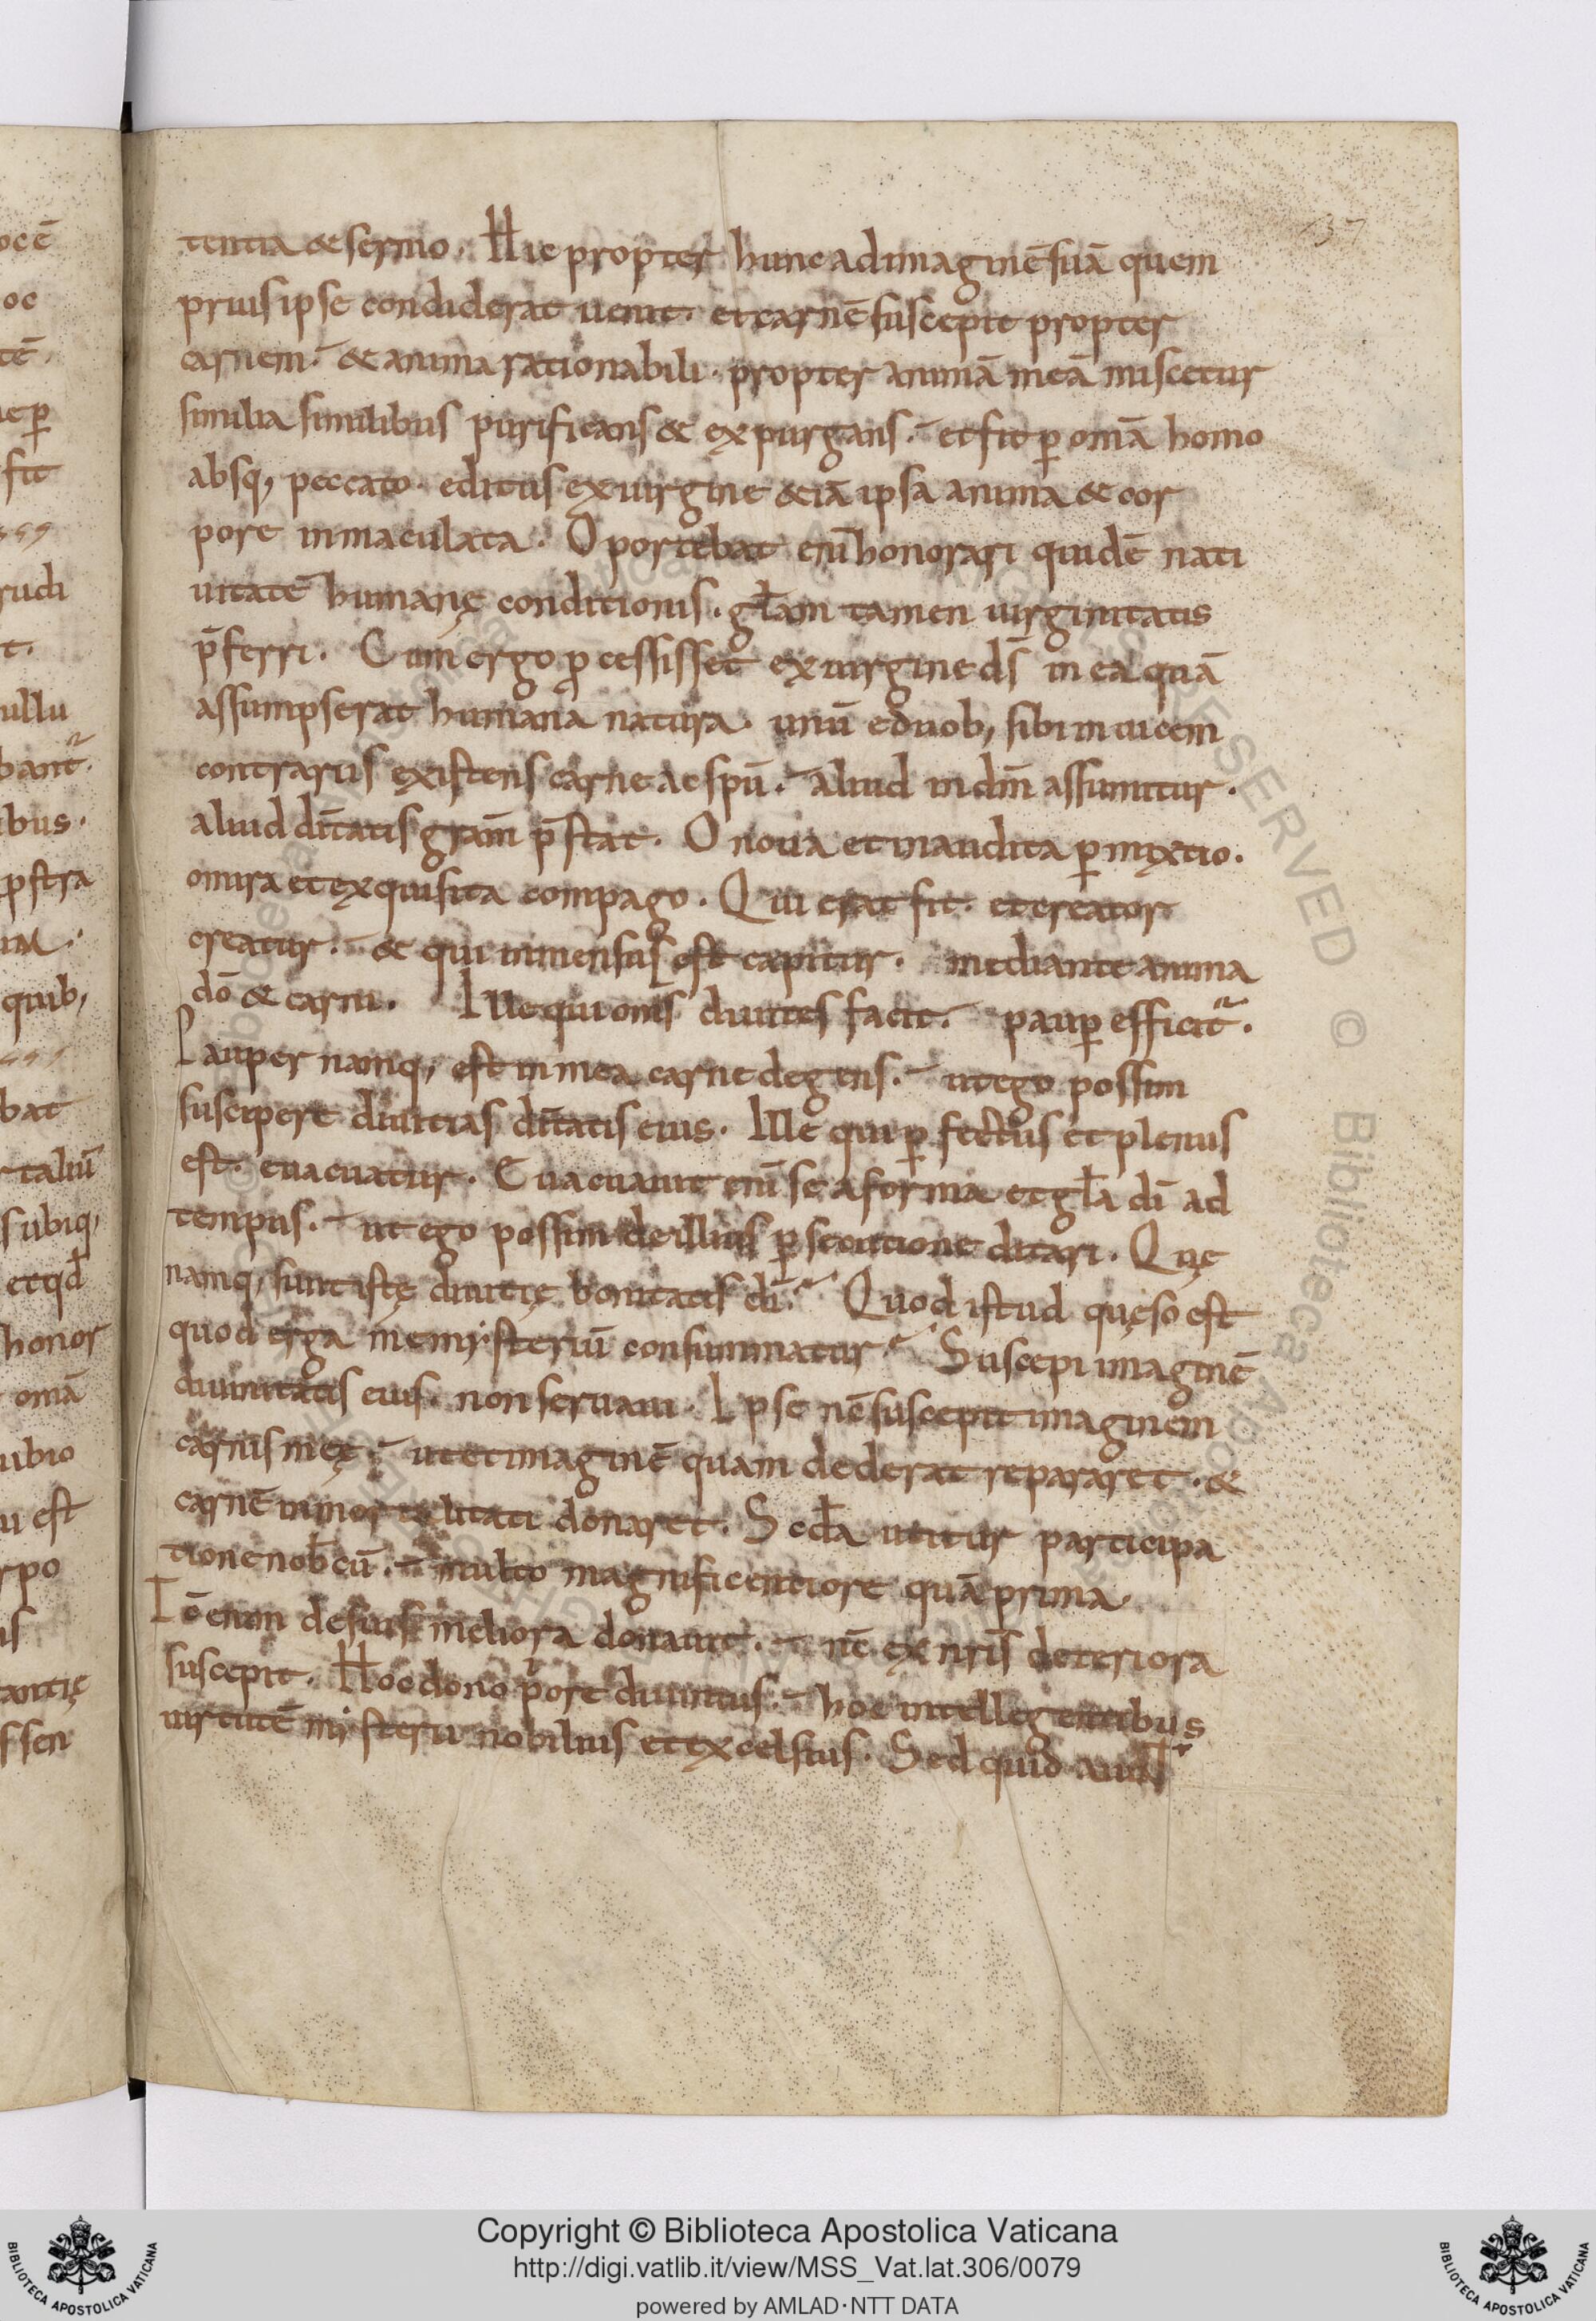 137
tentia & sermo. Hic propter hunc ad imaginē suā quem
prius ipse condiderat uenit. et carnē suscepit propter
carnem. & anima rationabili. propter animā meā miscetur
similia similibus purificans & expurgans. et fit ꝑ omā homo
absq; peccato. editus ex uirgine &iā ipsa anima & cor
pore inmaculata. Oportebat eni̅ honorari quidē nati
uitatē humanę conditionis. gl̅am tamen uirginitatis
p̅ferri. Cum ergo ꝓcessisset ex uirgine ds̅ in ea quā
assumpserat humana natura. unū e duob; sibi inuicem
contrariis existens carne ac spū. aliud in dm̅ assumitur.
aliud di̅tatis gram̅ p̅stat. O noua et inaudita ꝑmixtio.
o mira et exquisita compago. Qui erat fit. et creator
creatur. & qui inmensus est capitur. mediante anima
dō & carni. Ille qui oms̅ diuites facit. pauꝑ efficit᷑.
Pauper namq; est in mea carne degens. ut ego possim
suscipere diuitias di̅tatis eius. Ille qui ꝑfectus et plenus
est. euacuatur. Euacuauit eni̅ se a forma et gl̅a di̅ ad
tempus. ut ego possim de illius ꝑsecutione ditari. Quę
namq; sunt istę diuitię bonitatis di̅. Quod istud quęso est
quod erga me mysteriū consummatur. Suscepi imaginē
diuinitatis eius. non seruaui. Ipse nc̅ suscepit imaginem
carnis meę. ut et imaginē quam dederat repararet. &
carnē inmortalitati donaret. Scd̅a utitur participa
tione nob̅cū. multo magnificentiore quā prima.
Tc̅ enim de suis meliora donauit. nc̅ ex nris̅ deteriora
suscepit. Hoc dono pⁱore diuinius. hoc intellegentibus
uirtutē mysterii nobilius et excelsius. Sed quid
Copyright © Biblioteca Apostolica Vaticana
http://digi.vatlib.it/view/MSS_Vat.lat.306/0079
powered by AMLAD·NTT DATA
BIBLIOTECA APOSTOLICA VATICANA
BIBLIOTECA APOSTOLICA VATICANA